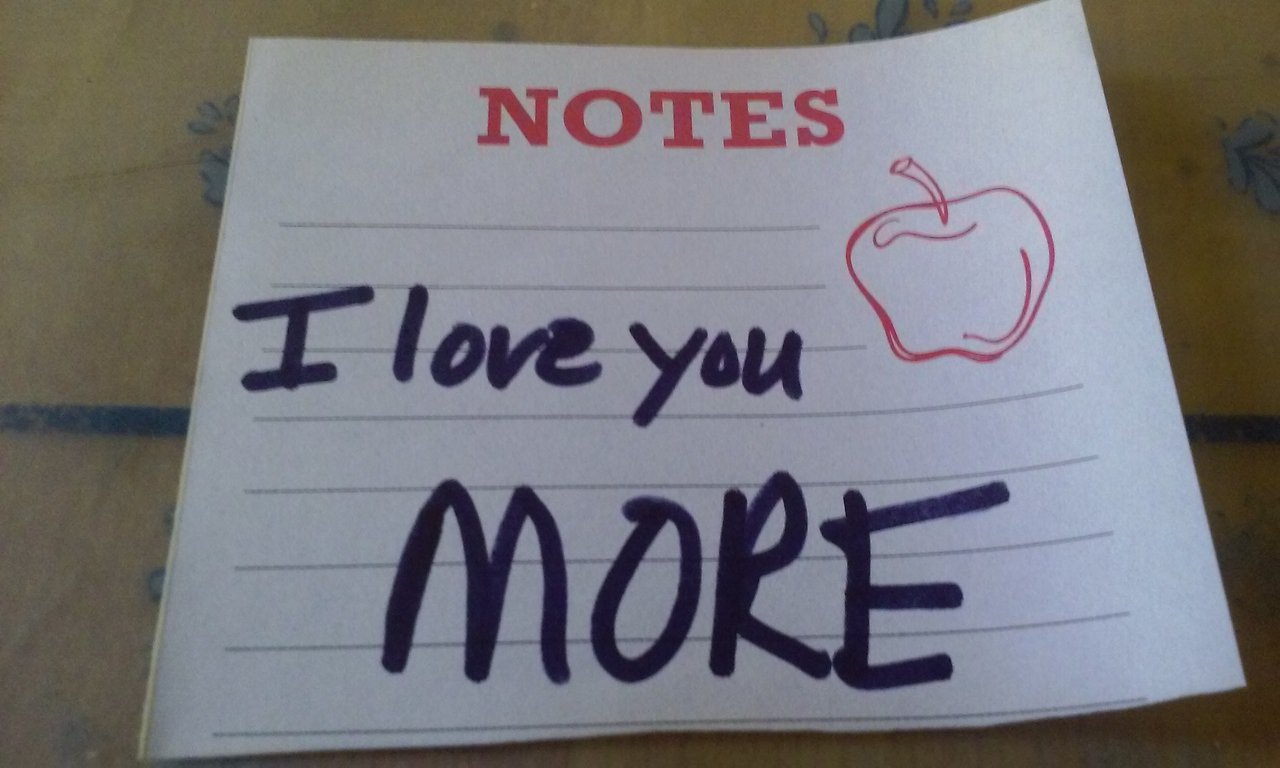 NOTES
I love you
MORE